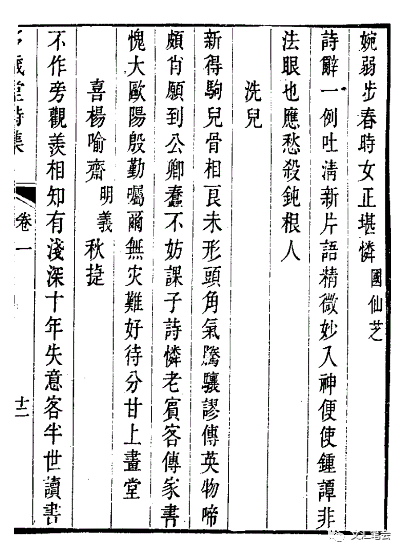 婉弱步春時女正堪憐 國仙芝
詩辭一例吐清新片語精微妙入神便使鍾譚非
法眼也應愁殺鈍根人
洗兒
新得駒兒骨相良未形頭角氣騰驤謬傳英物啼
頗肖願到公卿蠢不妨課子詩憐老賓客傳家書
愧大歐陽殷勤囑爾無灾難好待分甘上畫堂
喜楊喻齋明義秋捷
不作旁觀羨相知有淺深十年失意客半世讀書
多歲堂詩集 卷一 十二